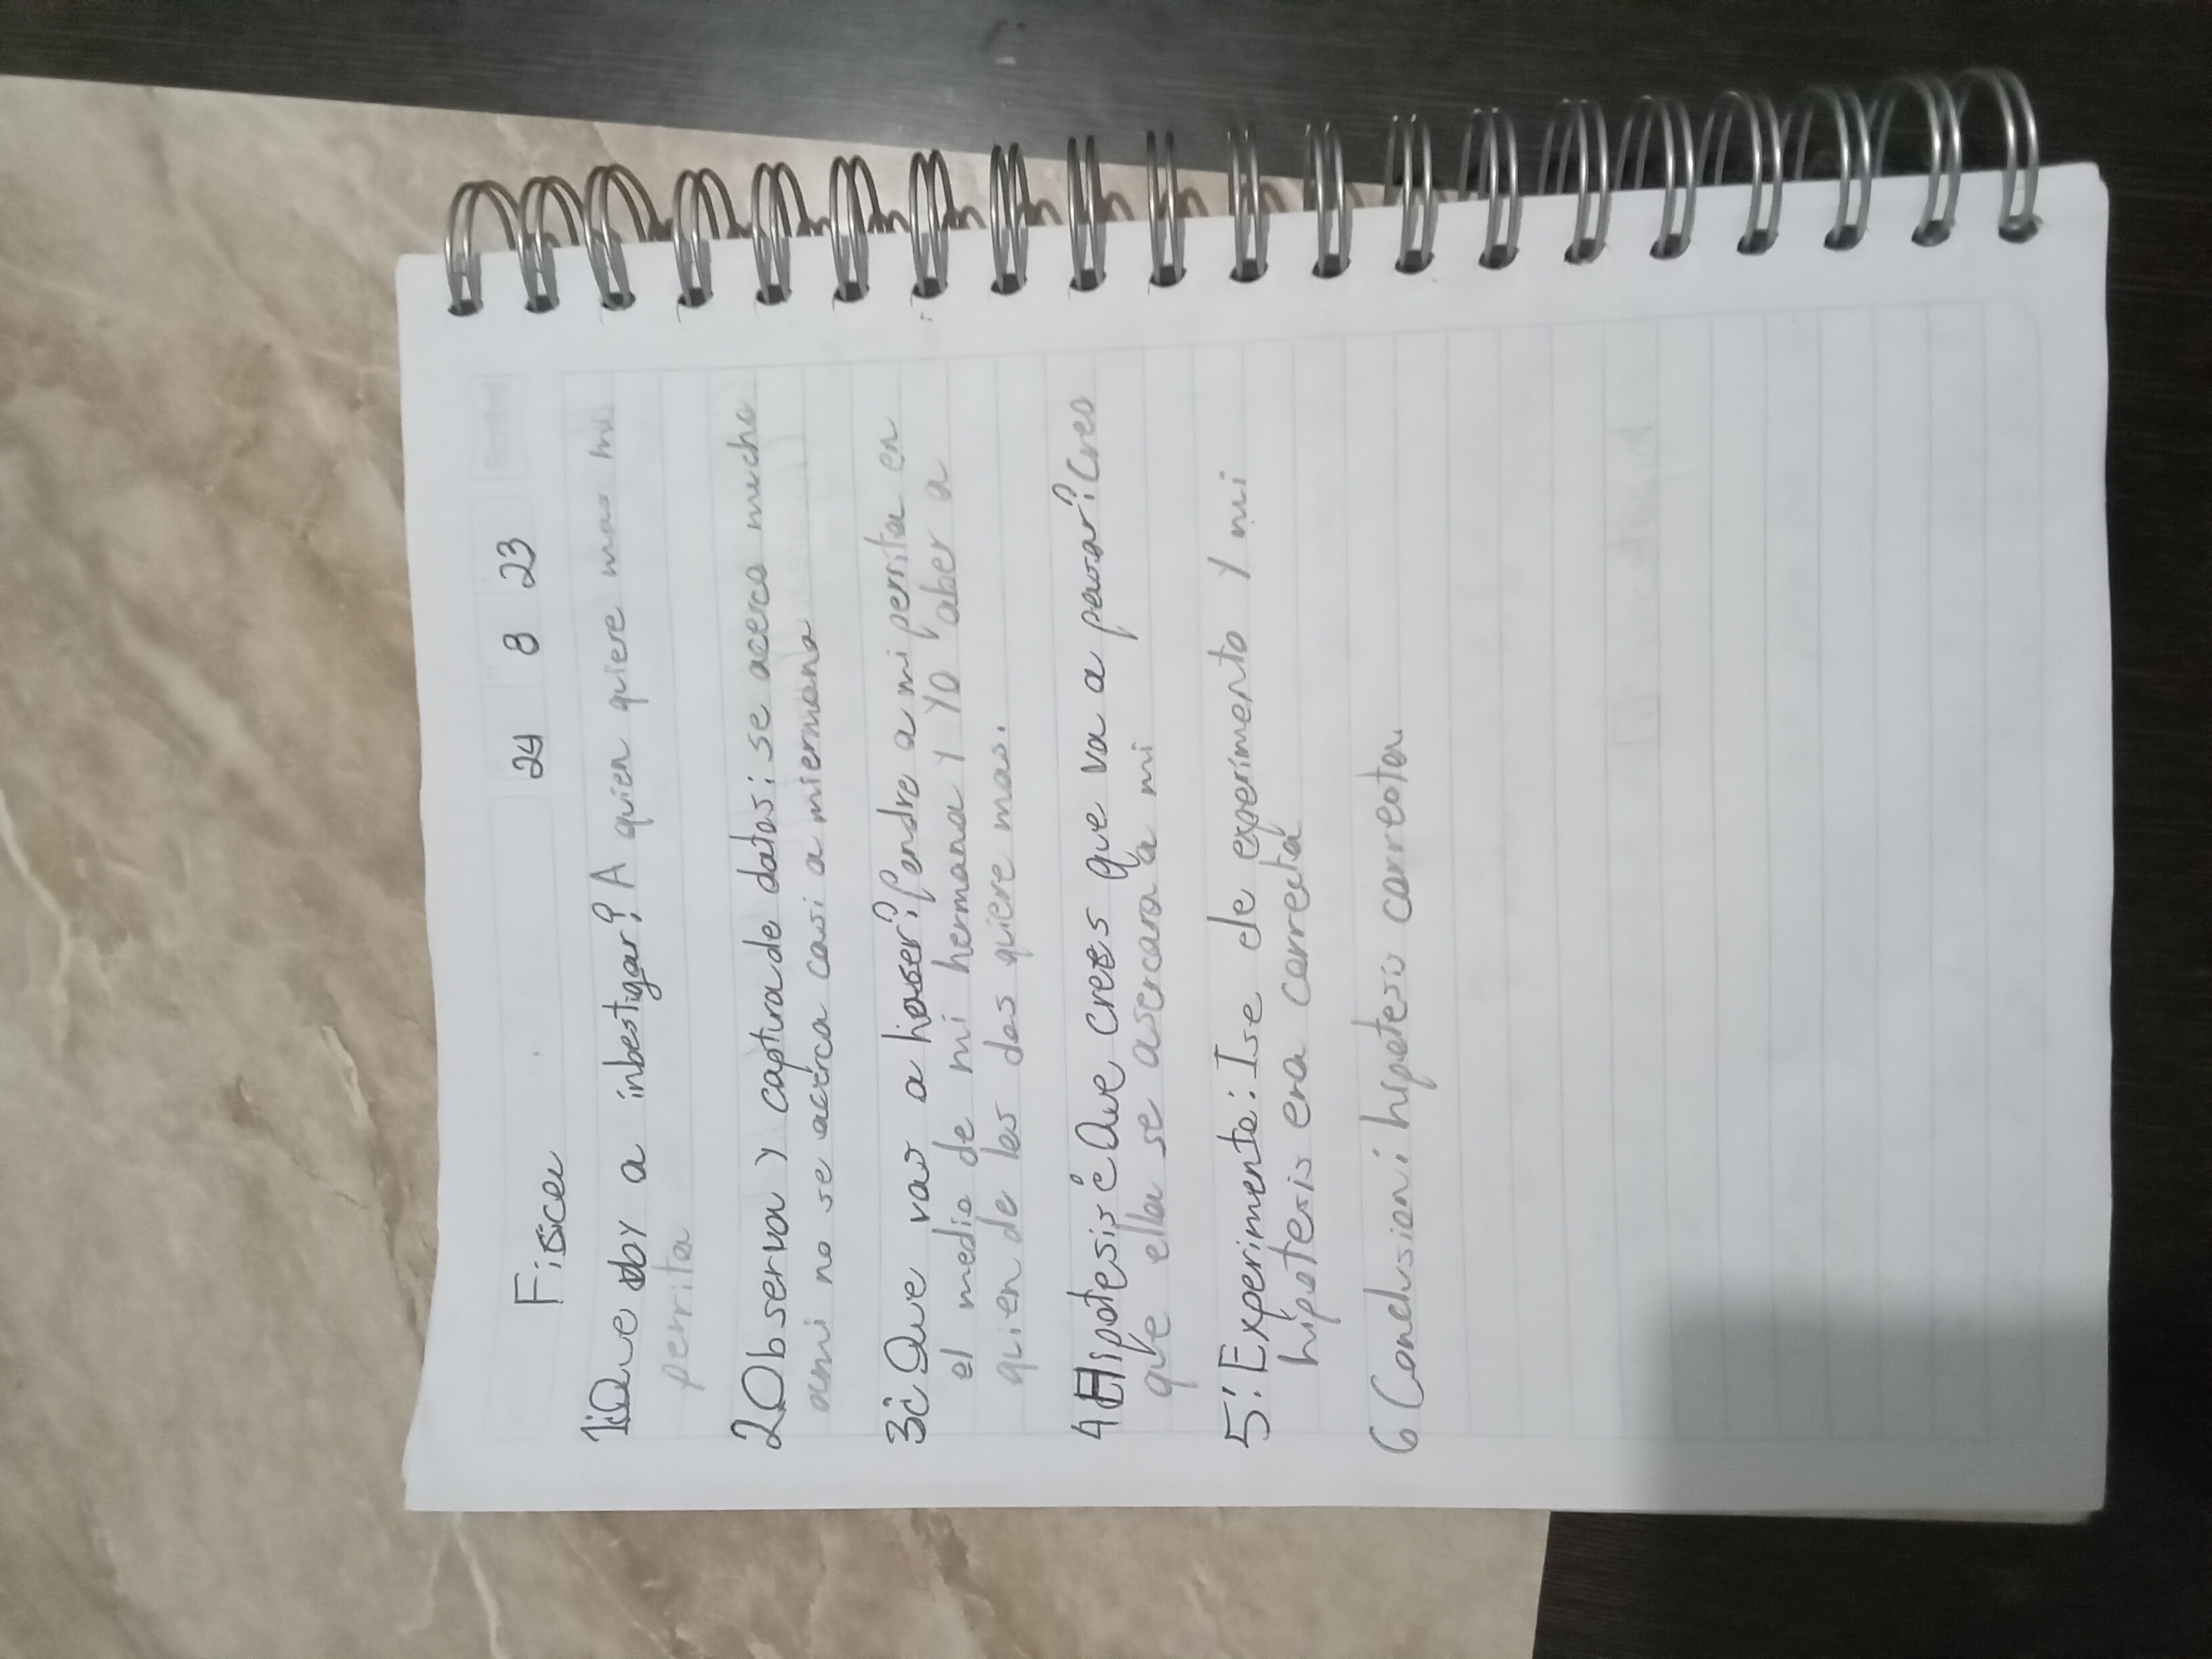 24 8 23
Fisica
1¿Que boy a inbestigar? A quien quiere mas mi
perrita
2Observa y captura de datos: se acerca mucho
ami no se acerca casi a miermana
3¿Que vas a haser? Pondre a mi perrita en
el medio de mi hermana y yo aber a
quien de las dos quiere mas.
4Hipotesis ¿Que crees que va a pasar? Creo
que ella se ascercara a mi
5: Experimento: Ise ele experimento y mi
hipotesis era correcta
6 Conclusion: hipotesis correcta